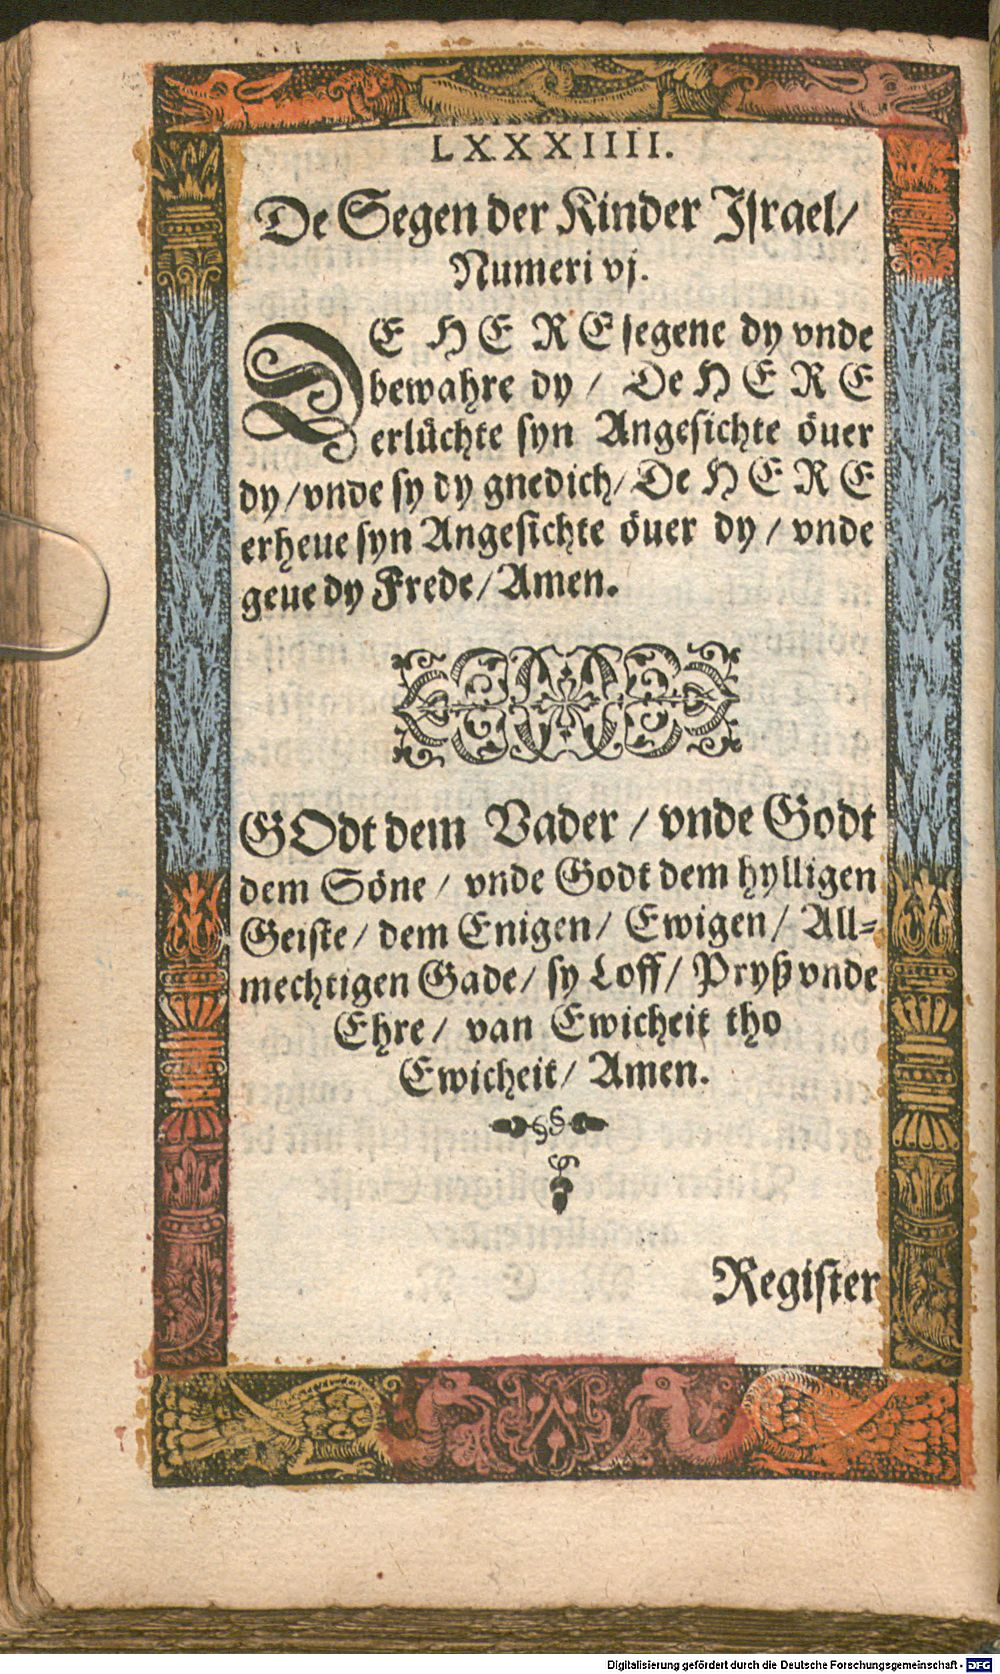 LXXXIIII.
De Segen der Kinder Israel/
Numeri vj.
DE HERE segene dy vnde
bewahre dy / De HERE
erlüchte syn Angesichte öuer
dy / vnde sy dy gnedich / De HERE
erheue syn Angesichte öuer dy / vnde
geue dy Frede / Amen.
GOdt dem Vader / vnde Godt
dem Söne / vnde Godt dem hylligen
Geiste / dem Enigen / Ewigen / All-
mechtigen Gade / sy Loff / Pryß vnde
Ehre / van Ewicheit tho
Ewicheit / Amen.
Register
Digitalisierung gefördert durch die Deutsche Forschungsgemeinschaft - DFG